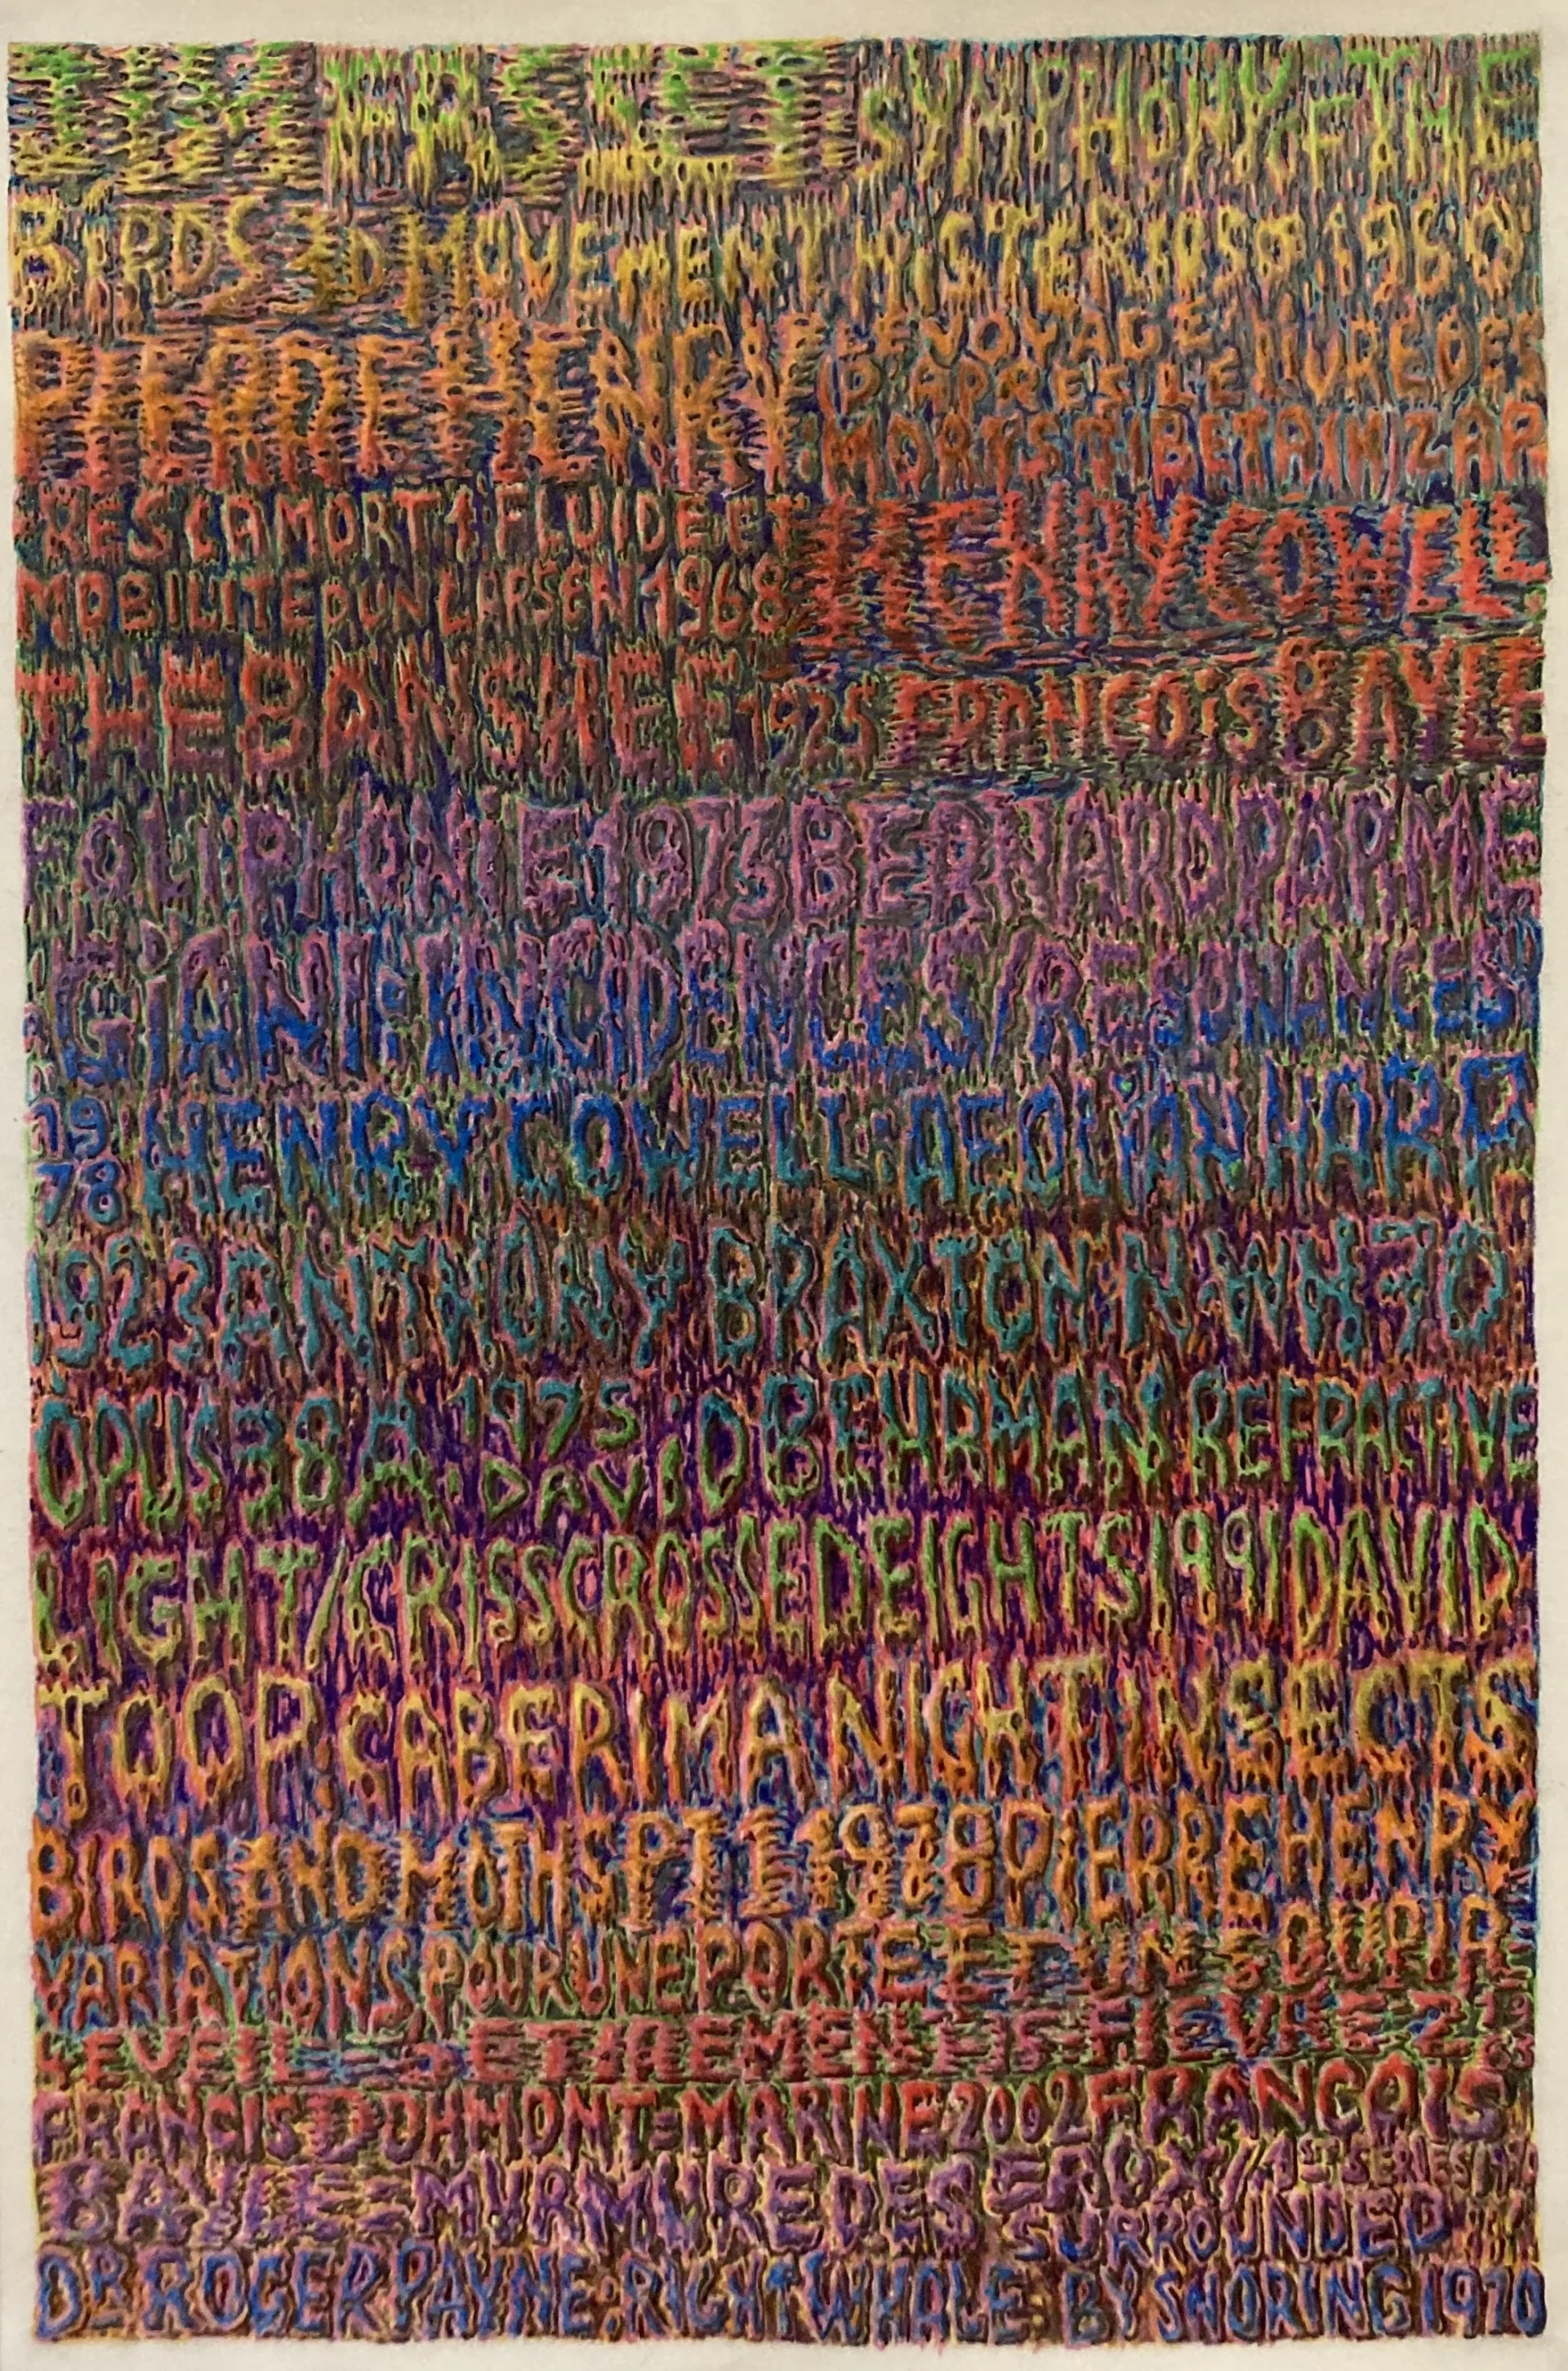 JIM FASSETT: SYMPHONY OF THE
BIRDS 3D MOVEMENT MISTERIOSO 1960
PIERRE HENRY LE VOYAGE
(D'APRES LE LIVRE DES
MORTS TIBETAIN 2 AP
RES LA MORT 1 FLUIDE ET
MOBILITE DUN LARSEN 1968
HENRY COWELL:
THE BANSHEE 1925 FRANCOIS BAYLE
BERNARD PARME
GIANI INCIDENCES/RESONANCES
1978 HENRY COWELL: AEOLIAN HARP
1923 ANTHONY BRAXTON
OPUS 38A 1975 DAVID BEHRMAN REFRACTIVE
LIGHT/CRISSCROSSED EIGHTS 1991 DAVID
TOOP: CABERIMA NIGHT INSECTS
BIRDS AND MOTHS PT 1 1978 PIERRE HENRY
VARIATIONS POUR UNE PORTE ET UN SOUPIR
EVEIL ETIREMENTS FIEVRE 2 1963
FRANCIS DHOMONT = MARINE 2002 FRANCOIS
BAYLE = MURMURE DES EROX / 1ST SERIES
DR ROGER PAYNE: RIGHT WHALE SURROUNDED
BY SNORING 1970